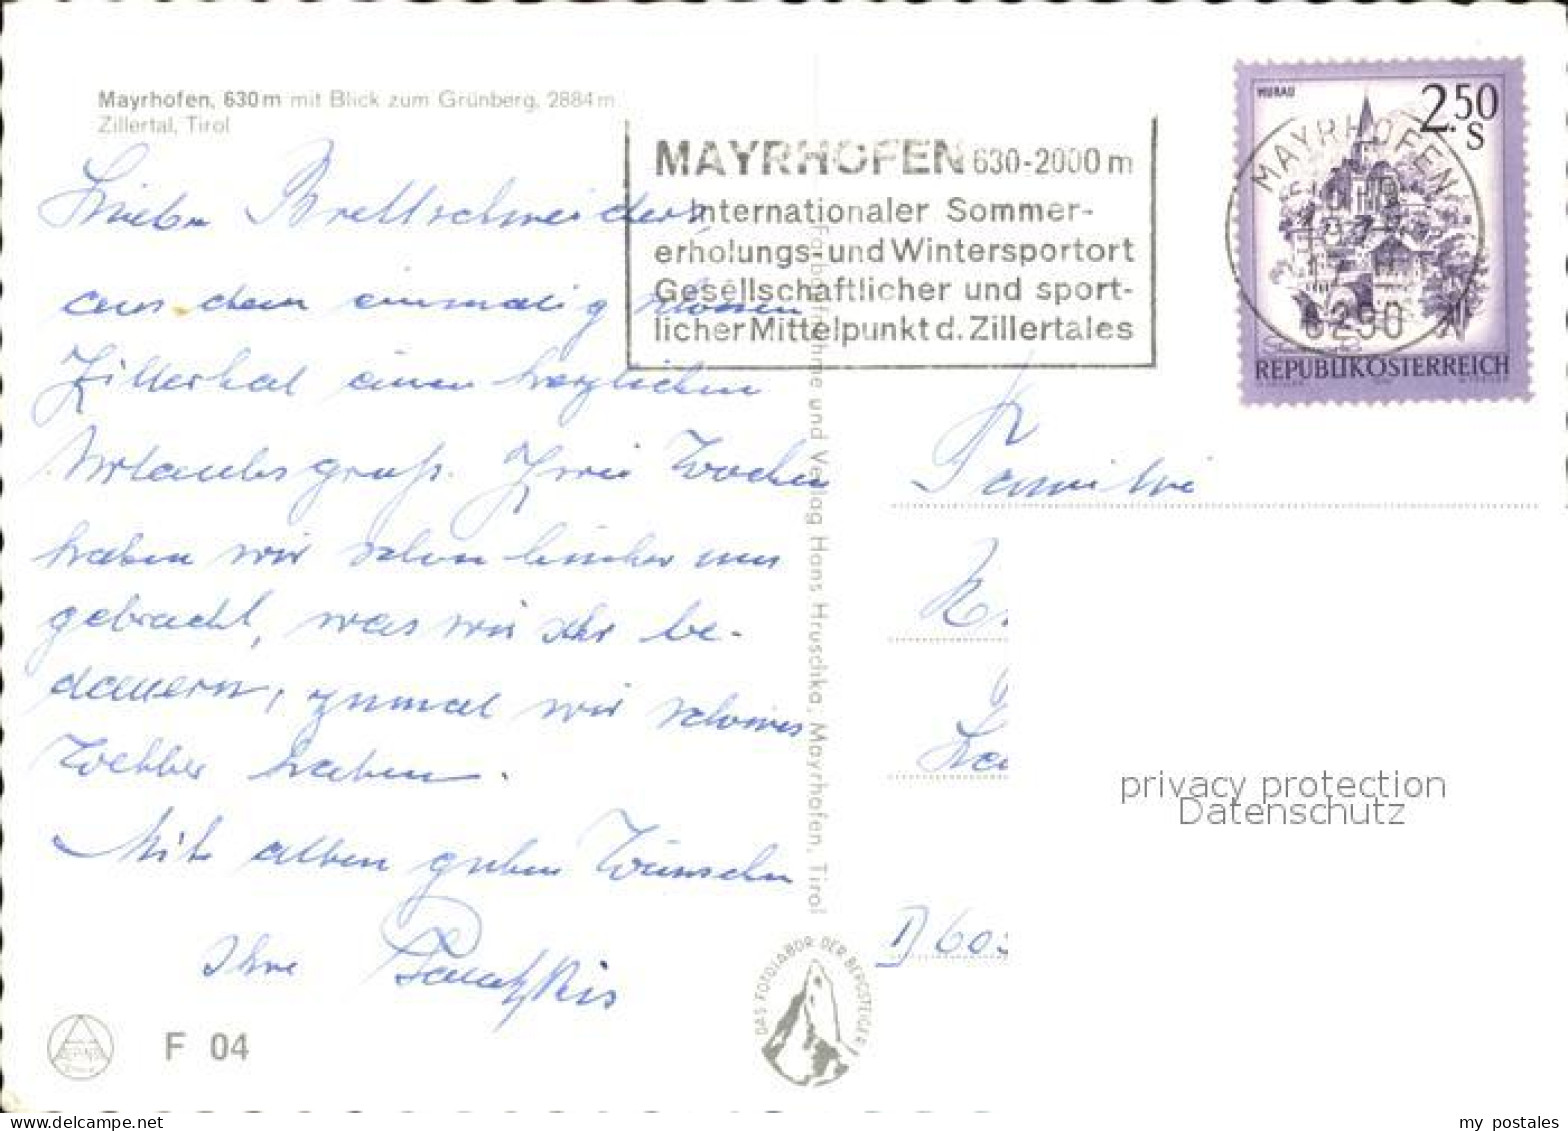 Mayrhofen, 630 m mit Blick zum Grünberg, 2884 m
Zillertal, Tirol
MAYRHOFEN 630-2000 m
Internationaler Sommer-
erholungs- und Wintersportort
Gesellschaftlicher und sport-
licher Mittelpunkt d. Zillertales
MURAU
2.50
S
MAYRHOFEN
6290
REPUBLIK ÖSTERREICH
Liebe Brettschneiders
aus dem einmalig schönen
Zillertal einen herzlichen
Urlaubsgruß. Zwei Wochen
haben wir schon hinter uns
gebracht, was wir sehr be-
dauern, zumal wir schönes
Wetter haben.
Mit allen guten Wünschen
Ihre
Familie
D 60
Farbaufnahme und Verlag Hans Hruschka, Mayrhofen, Tirol
DAS FOTOLABOR DER BERGSTEIGER
F 04
privacy protection
Datenschutz
my postales
www.delcampe.net